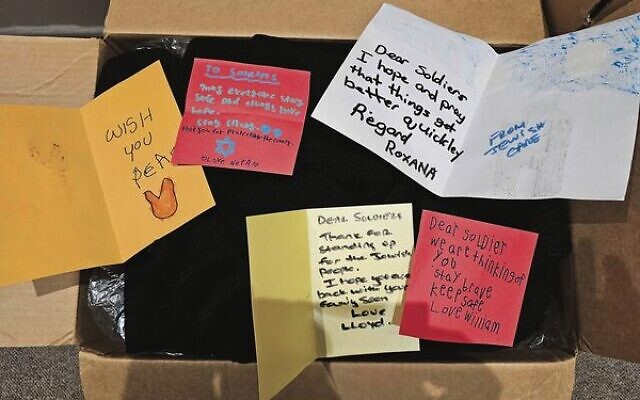 WISH
YOU
PEA
TO SOLDIERS
may everyone stay
safe and always have
hope.
Stay strong.
thank you for Protecting the country.
LOVE
Dear Soldiers
I hope and pray
that things get
better quickley
Regard
ROXANA
FROM
JEWISH
CARE
DEAR SOLDIERS
Thank for
standing up
for the Jewish
People.
I hope you are
back with your
family soon
LOVE
LLOYD.
Dear soldier
we are thinking of
You
stay brave
keep safe
Love William